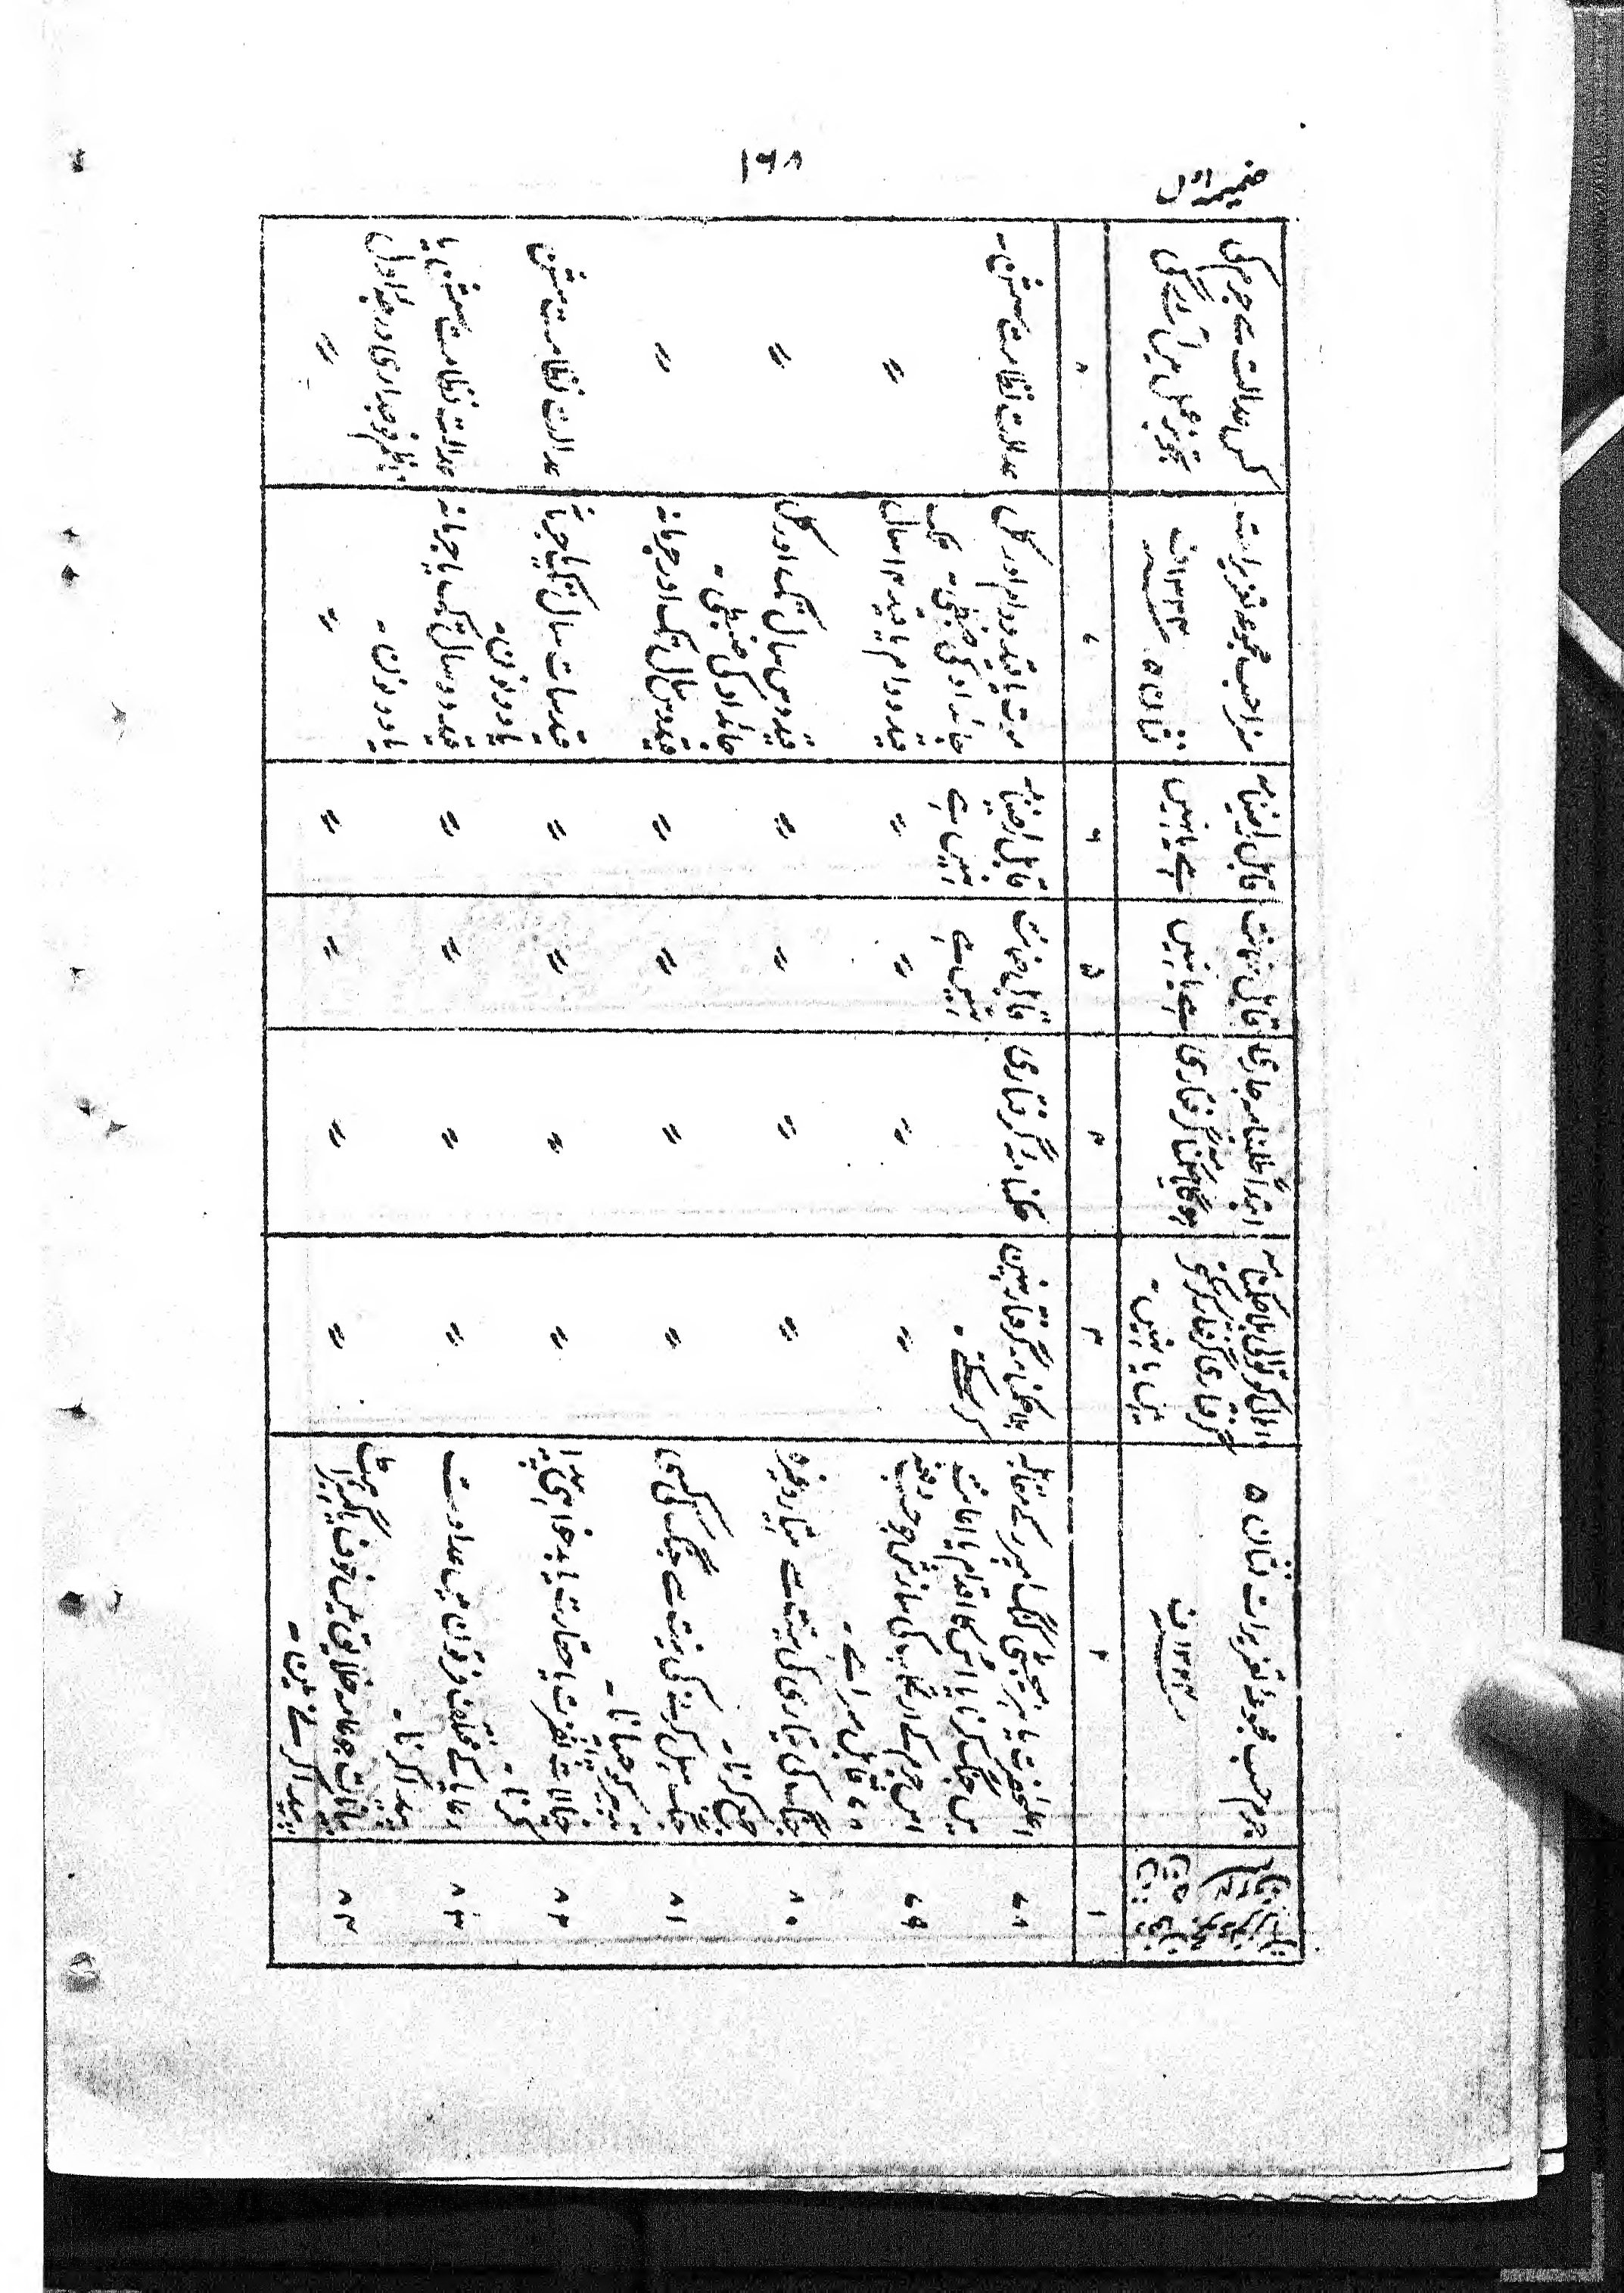 ضمیمہ اول
۱۶۸
جرم حسب مجموعہ تعزیرات نشان ۵
۱۳۲۴ف
اہالی کوتوالی بلا حکمنامہ
گرفتاری گرفتار کرسکتے
ہیں یا نہیں۔
ابتداً طلبنامہ جاری
ہوگا یا حکمنامہ گرفتاری
قابل ضمانت
ہے یا نہیں
قابل راضینامہ
ہے یا نہیں
سزا حسب مجموعہ تعزیرات
نشان ۵ ۱۳۲۴ف
کس عدالت سے جرم کی
تجویز عمل میں آئے گی
۱
۲
۳
۴
۵
۶
۷
۸
۷۸
میں جنگ کرنا یا اس کا اقدام یا اعانت
بلا حکمنامہ گرفتار نہیں
کرسکتے۔
حکمنامہ گرفتاری
قابل ضمانت
نہیں ہے
قابل راضینامہ
نہیں ہے
موت یا قید دوام اور کل
جائداد کی ضبطی۔
عدالت نظامت سشن۔
۷۹
اس جرم کے ارتکاب کی سازش جو حسب دفعہ
۷۸ قابل سزا ہے۔
〃
〃
〃
〃
قید دوام یا قید ۱۴ سال تک
〃
۸۰
جنگ کی تیاری کی نیت سے ہتیار وغیرہ
جمع کرنا۔
〃
〃
〃
〃
قید دس سال تک اور کل
جائداد کی ضبطی۔
〃
۸۱
جنگ سہل کرنے کی نیت سے جنگ کی کسی
تدبیر کو چھپانا۔
〃
〃
〃
〃
قید دس سال تک اور جرمانہ
〃
۸۲
خیالات نفرت یا حقارت یا بدخواہی پیدا
کرنا۔
〃
〃
〃
〃
قید سات سال تک یا جرمانہ
یا دونوں۔
عدالت نظامت سشن
۸۳
رعایا کے مختلف فرقوں میں عداوت
پیدا کرنا۔
〃
〃
〃
〃
قید دو سال تک یا جرمانہ
یا دونوں۔
عدالت نظامت سشن یا
ناظم فوجداری درجہ اول
۸۴
پیدا کرتے ہیں۔
〃
〃
〃
〃
〃
〃